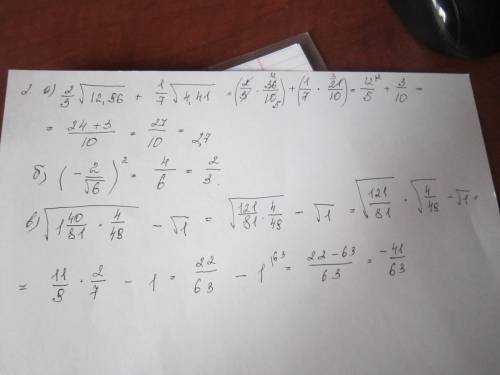 2. а) 2/5 √12,96 + 1/7 √4,41 = (2/5 · 36/10) + (1/7 · 21/10) = 12/5 + 3/10 =
= 24+3/10 = 27/10 = 2,7
б) (- 2/√6)² = 4/6 = 2/3.
в) √(1 40/81 · 4/49) - √1 = √(121/81 · 4/49) - √1 = √(121/81) · √(4/49) - √1 =
= 11/9 · 2/7 - 1 = 22/63 - 1 = 22-63/63 = -41/63